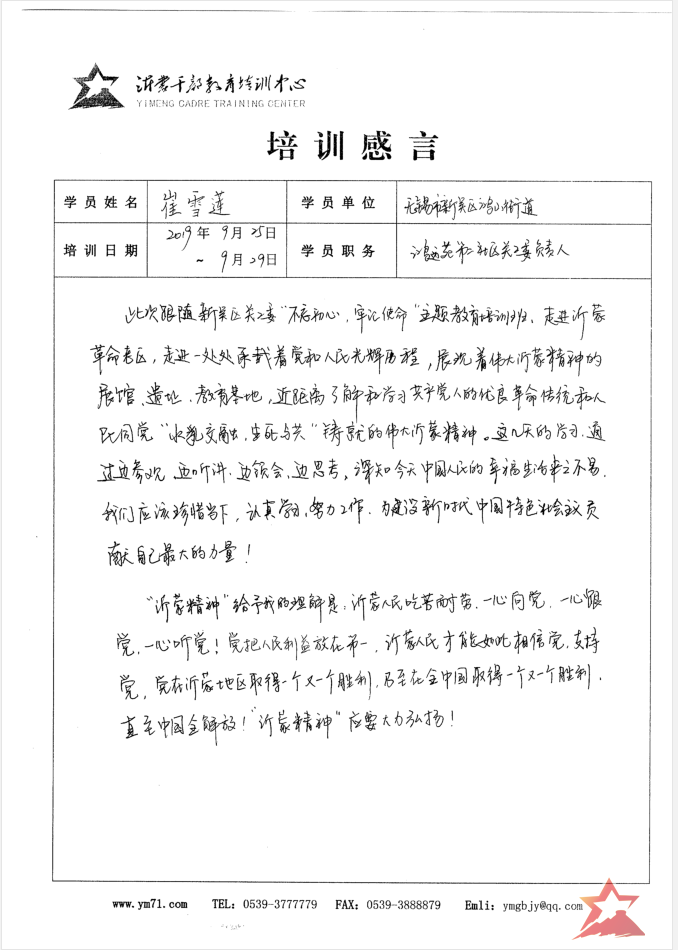 沂蒙干部教育培训中心
YIMENG CADRE TRAINING CENTER
培训感言
学员姓名 崔雪莲 学员单位 无锡市新吴区鸿山街道
培训日期 2019年9月25日 ~ 9月29日 学员职务 鸿运苑第二社区关工委负责人
此次跟随新吴区关工委“不忘初心,牢记使命”主题教育培训班,走进沂蒙
革命老区,走进一处处承载着党和人民光辉历程,展现着伟大沂蒙精神的
展馆、遗址、教育基地,近距离了解和学习共产党人的优良革命传统和人
民同党“水乳交融、生死与共”铸就的伟大沂蒙精神。这几天的学习,通
过边参观、边听讲、边领会、边思考,深知今天中国人民的幸福生活来之不易.
我们应该珍惜当下,认真学习,努力工作.为建设新时代中国特色社会主义贡
献自己最大的力量!
“沂蒙精神”给予我的理解是:沂蒙人民吃苦耐劳、一心向党、一心跟
党,一心听党!党把人民利益放在第一,沂蒙人民才能如此相信党,支持
党,党在沂蒙地区取得一个又一个胜利,乃至在全中国取得一个又一个胜利.
直至中国全解放!“沂蒙精神”应要大力弘扬!
www.ym71.com TEL: 0539-3777779 FAX: 0539-3888879 Emli: ymgbjy@qq.com